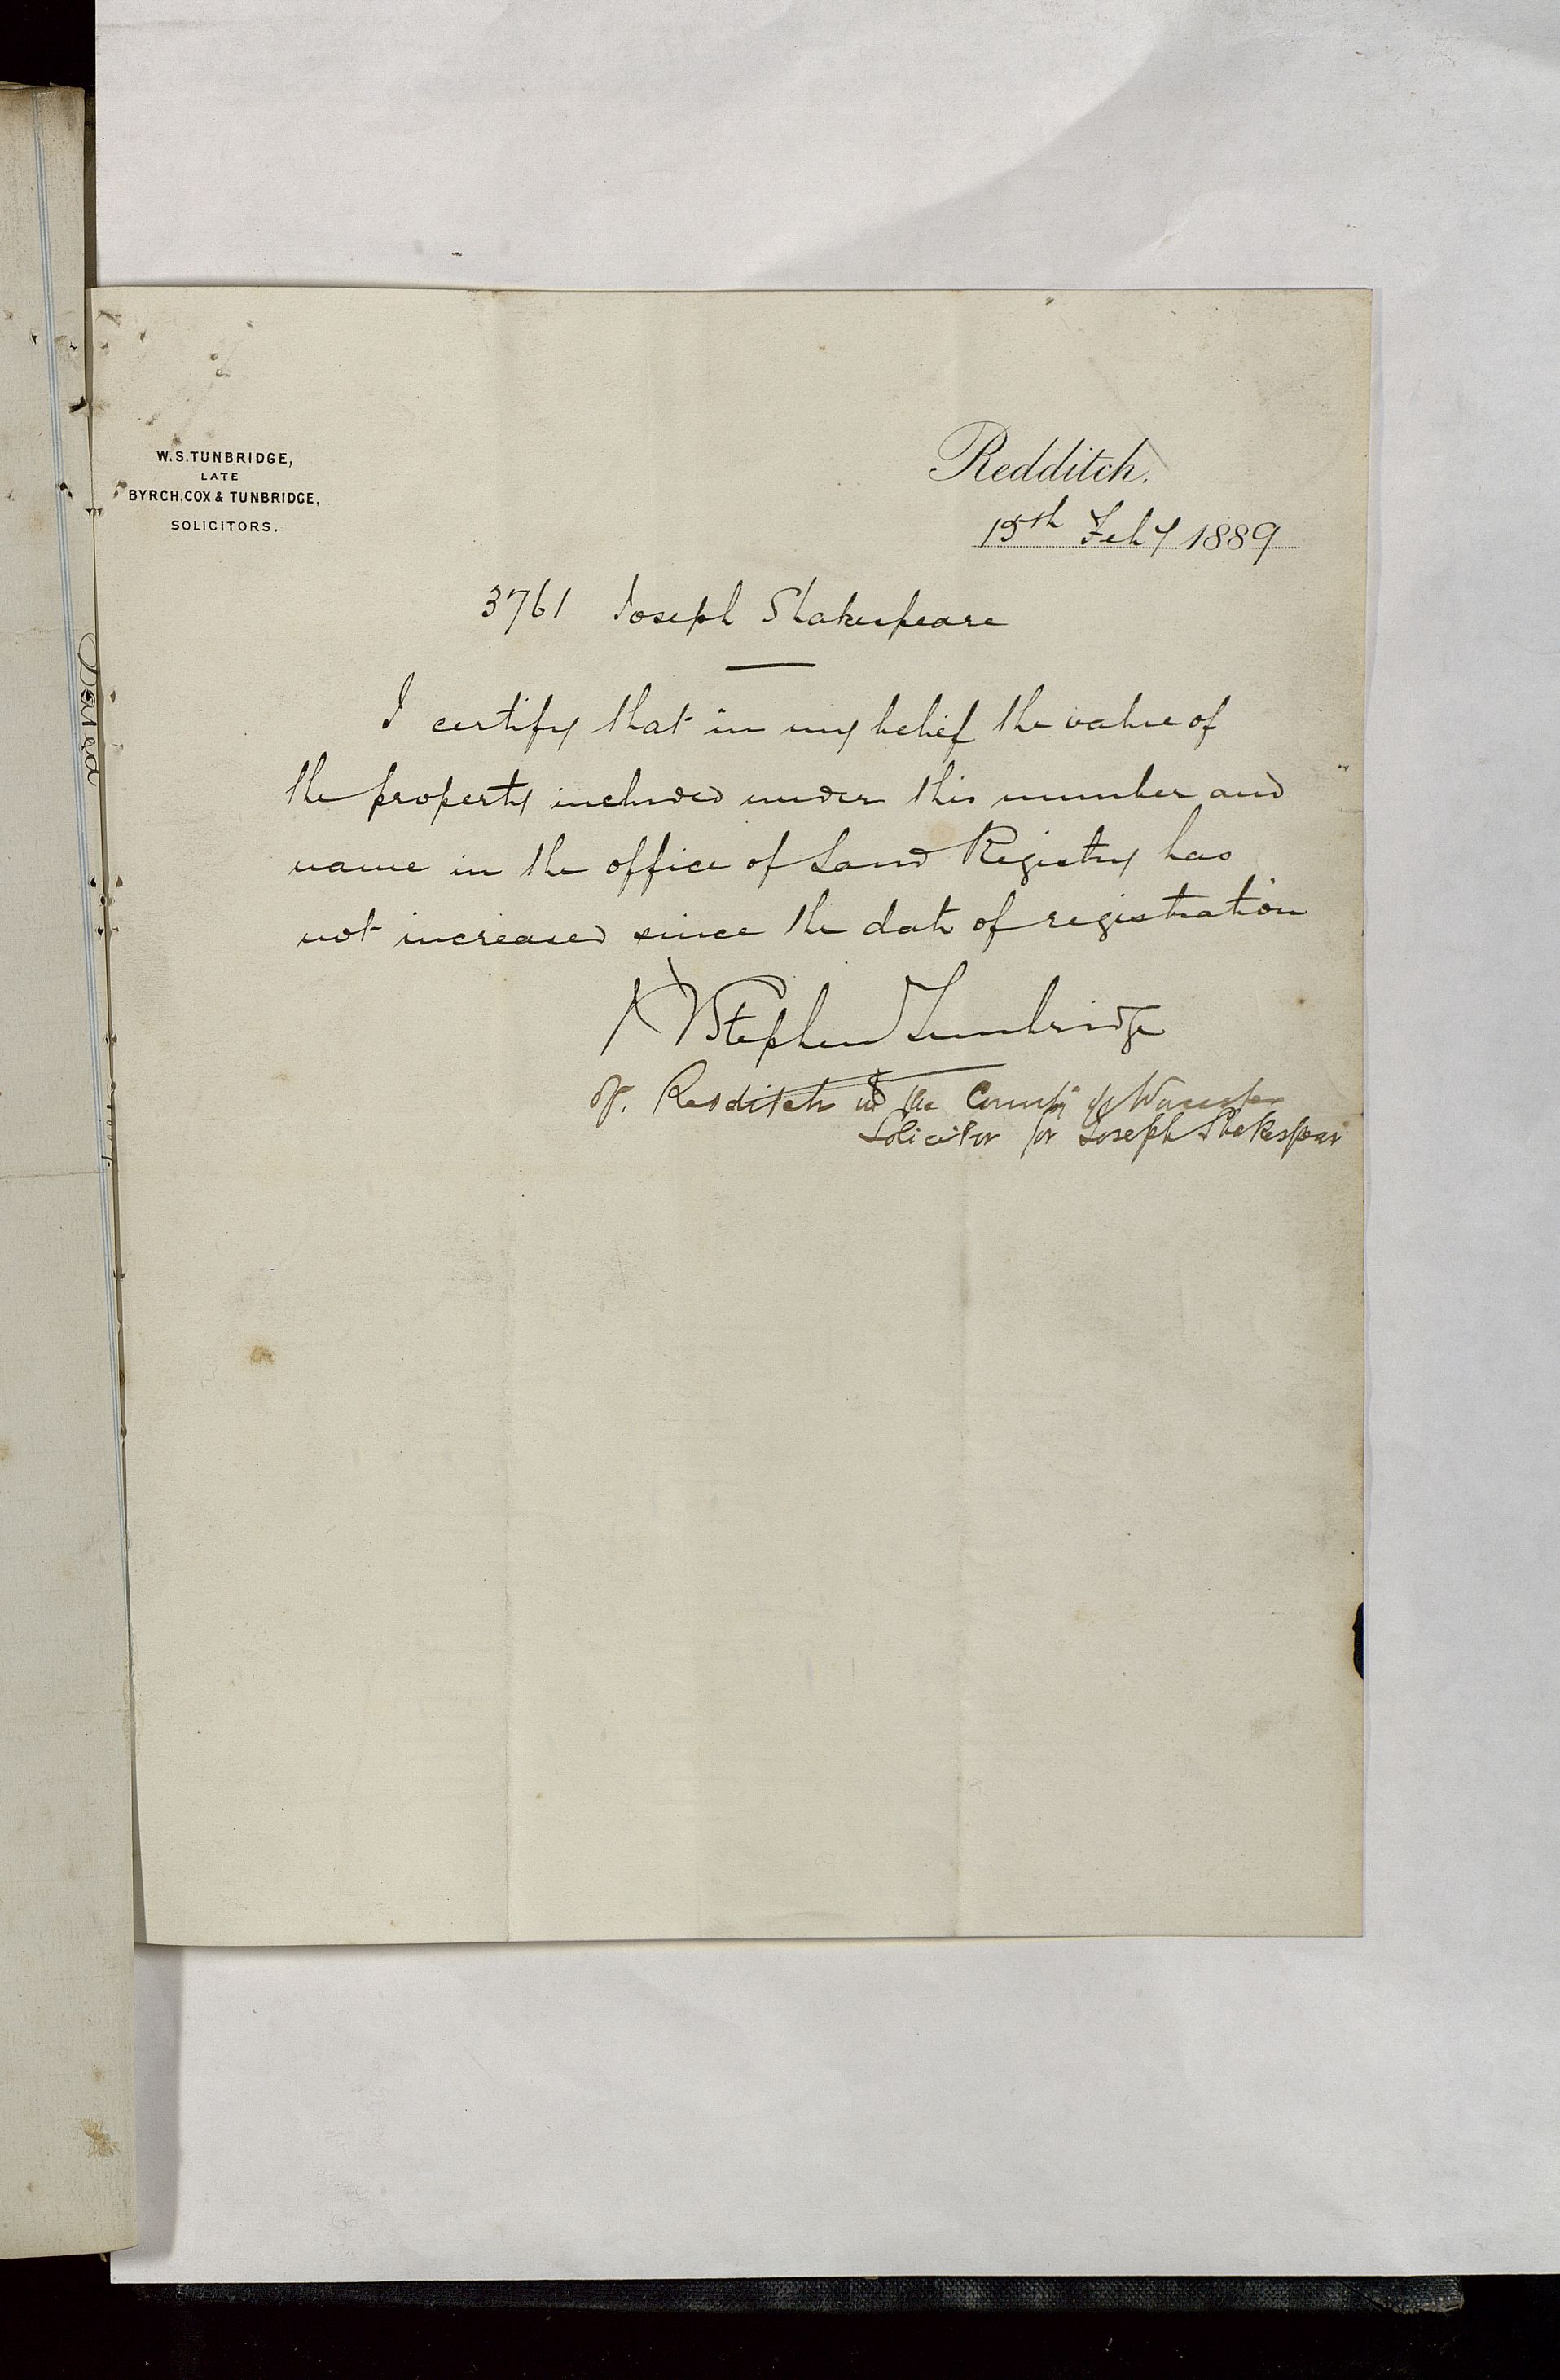 W.S.TUNBRIDGE,
LATE
BYRCH, COX & TUNBRIDGE,
SOLICITORS.
Redditch.
15th Feby 1889
3761 Joseph Shakespeare
I certify that in my belief the value of
the property included under this number and
name in the office of Land Registry has
not increased since the date of registration
W Stephen Tunbridge
of Redditch in the County of Worcester
Solicitor for Joseph Shakespear
Dated